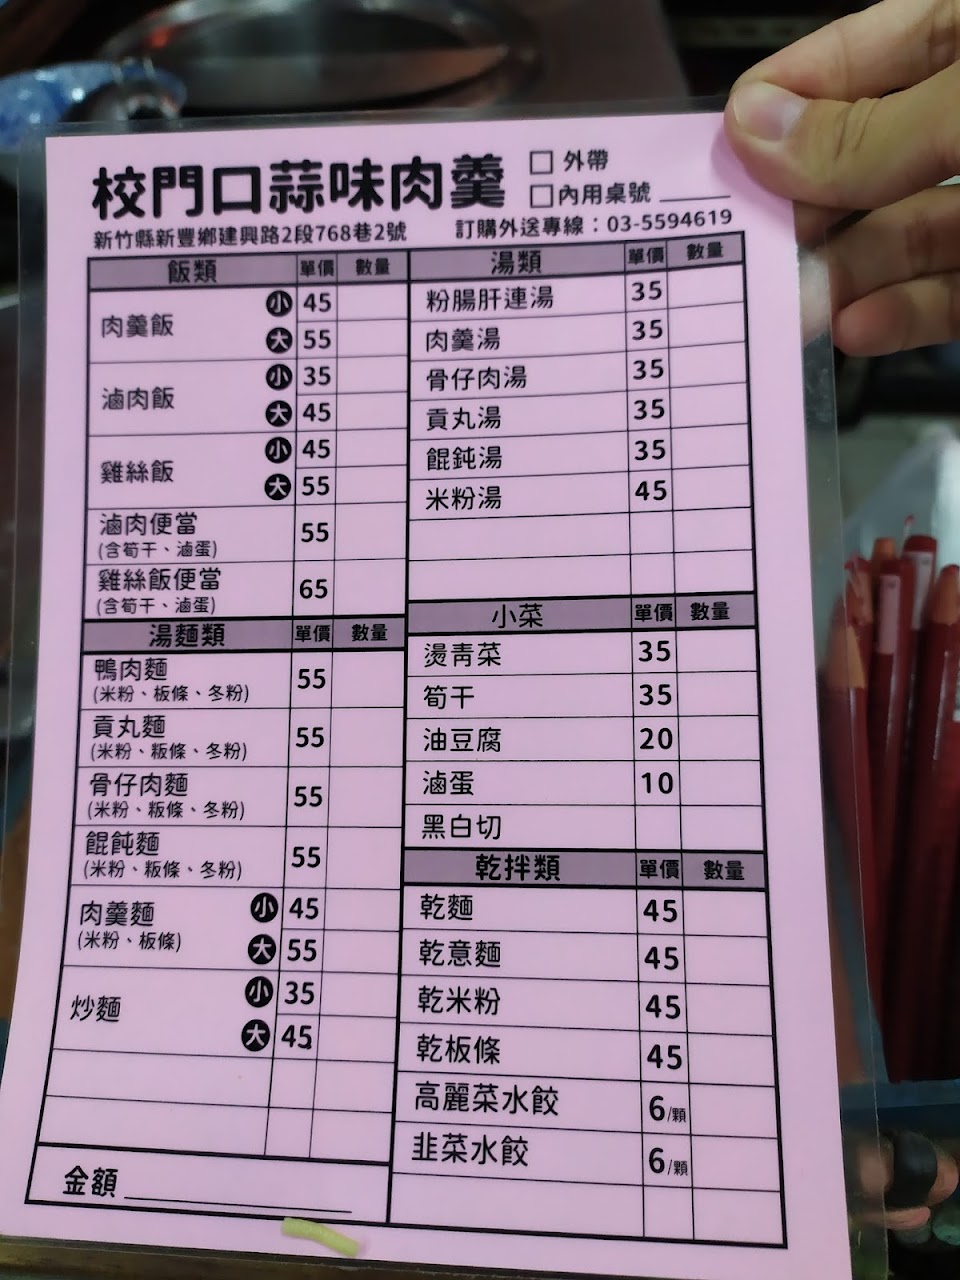 校門口蒜味肉羹
□外帶
□內用桌號
新竹縣新豐鄉建興路2段768巷2號
訂購外送專線：03-5594619
飯類 單價 數量
肉羹飯 小 45
大 55
滷肉飯 小 35
大 45
雞絲飯 小 45
大 55
滷肉便當 55
(含筍干、滷蛋)
雞絲飯便當 65
(含筍干、滷蛋)
湯麵類 單價 數量
鴨肉麵 55
(米粉、板條、冬粉)
貢丸麵 55
(米粉、粄條、冬粉)
骨仔肉麵 55
(米粉、粄條、冬粉)
餛飩麵 55
(米粉、粄條、冬粉)
肉羹麵 小 45
(米粉、板條) 大 55
炒麵 小 35
大 45
金額
湯類 單價 數量
粉腸肝連湯 35
肉羹湯 35
骨仔肉湯 35
貢丸湯 35
餛飩湯 35
米粉湯 45
小菜 單價 數量
燙青菜 35
筍干 35
油豆腐 20
滷蛋 10
黑白切
乾拌類 單價 數量
乾麵 45
乾意麵 45
乾米粉 45
乾板條 45
高麗菜水餃 6/顆
韭菜水餃 6/顆